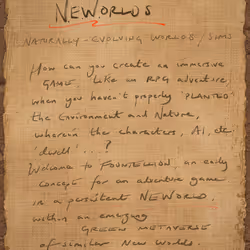 NEWORLDS
NATURALLY-EVOLVING WORLDS / SIMS
HOW can you create an immersive
GAME like an RPG adventure
when you haven't properly 'PLANTED'
the Environment and Nature,
wherein the characters, AI, etc
'dwell' ...?
Welcome to FOUNTELLION, an early
concept for an adventure game
in a persistent NEWORLD
within an emerging
GREEN METAVERSE
of similar New Worlds.